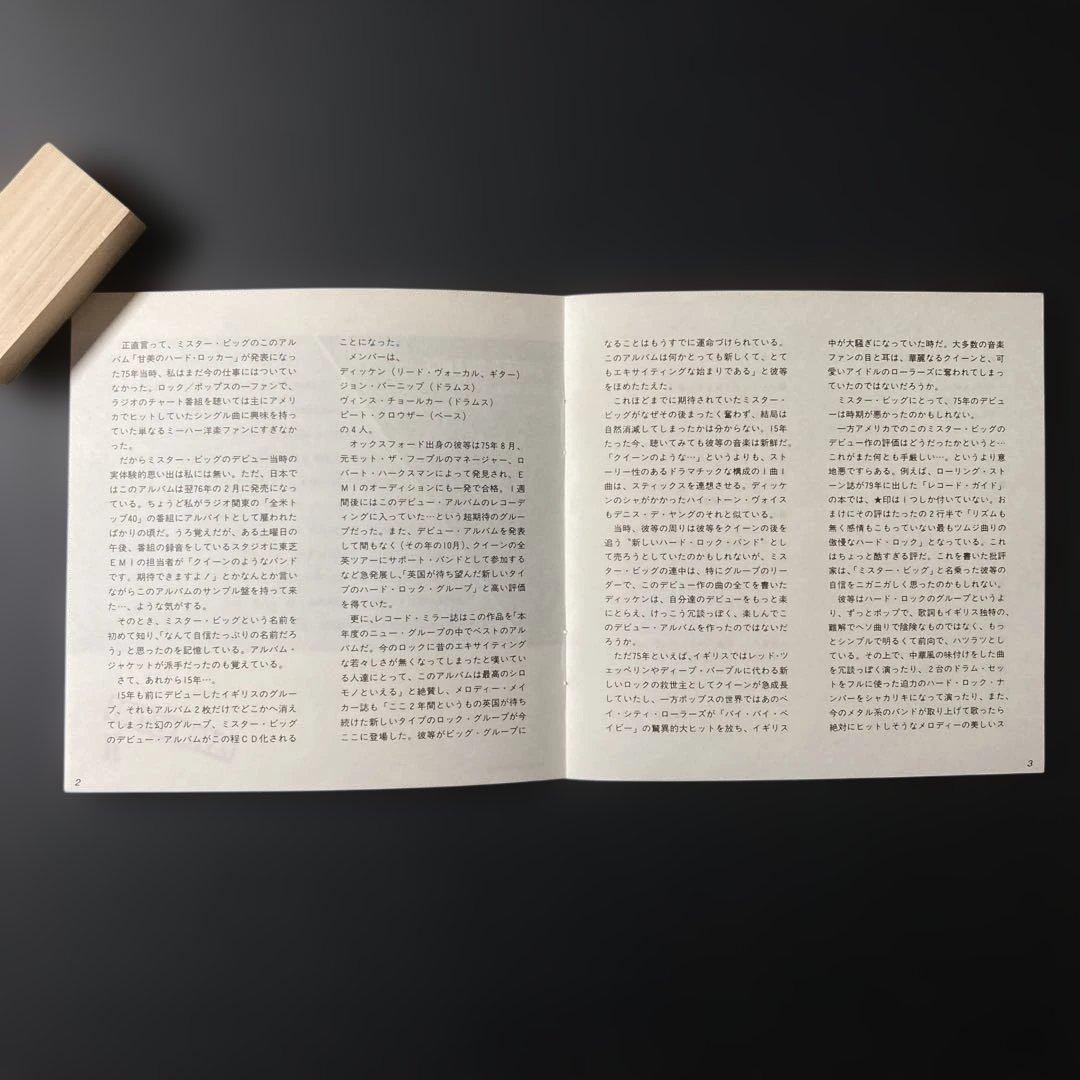 正直言って、ミスター・ビッグのこのアル
バム「甘美のハード・ロッカー」が発表になっ
た75年当時、私はまだ今の仕事にはついてい
なかった。ロック／ポップスの一ファンで、
ラジオのチャート番組を聴いては主にアメリ
カでヒットしていたシングル曲に興味を持っ
ていた単なるミーハー洋楽ファンにすぎなか
った。
だからミスター・ビッグのデビュー当時の
実体験的思い出は私には無い。ただ、日本で
はこのアルバムは翌76年の２月に発売になっ
ている。ちょうど私がラジオ関東の「全米ト
ップ40」の番組にアルバイトとして雇われた
ばかりの頃だ。うろ覚えだが、ある土曜日の
午後、番組の録音をしているスタジオに東芝
ＥＭＩの担当者が「クイーンのようなバンド
です。期待できますよ！」とかなんとか言い
ながらこのアルバムのサンプル盤を持って来
た…、ような気がする。
そのとき、ミスター・ビッグという名前を
初めて知り、「なんて自信たっぷりの名前だろ
う」と思ったのを記憶している。アルバム・
ジャケットが派手だったのも覚えている。
さて、あれから15年…。
15年も前にデビューしたイギリスのグルー
プ、それもアルバム２枚だけでどこかへ消え
てしまった幻のグループ、ミスター・ビッグ
のデビュー・アルバムがこの程ＣＤ化される
2
ことになった。
メンバーは、
ディッケン（リード・ヴォーカル、ギター）
ジョン・バーニップ（ドラムス）
ヴィンス・チョールカー（ドラムス）
ピート・クロウザー（ベース）
の４人。
オックスフォード出身の彼等は75年８月、
元モット・ザ・フープルのマネージャー、ロ
バート・ハークスマンによって発見され、Ｅ
ＭＩのオーディションにも一発で合格。１週
間後にはこのデビュー・アルバムのレコーデ
ィングに入っていた…という超期待のグルー
プだった。また、デビュー・アルバムを発表
して間もなく（その年の10月）、クイーンの全
英ツアーにサポート・バンドとして参加する
など急発展し、「英国が待ち望んだ新しいタイ
プのハード・ロック・グループ」と高い評価
を得ていた。
更に、レコード・ミラー誌はこの作品を「本
年度のニュー・グループの中でベストのアル
バムだ。今のロックに昔のエキサイティング
な若々しさが無くなってしまったと嘆いてい
る人達にとって、このアルバムは最高のシロ
モノといえる」と絶賛し、メロディー・メイ
カー誌も「ここ２年間というもの英国が待ち
続けた新しいタイプのロック・グループが今
ここに登場した。彼等がビッグ・グループに
なることはもうすでに運命づけられている。
このアルバムは何かとっても新しくて、とて
もエキサイティングな始まりである」と彼等
をほめたたえた。
これほどまでに期待されていたミスター・
ビッグがなぜその後まったく奮わず、結局は
自然消滅してしまったかは分からない。15年
たった今、聴いてみても彼等の音楽は新鮮だ。
「クイーンのような…」というよりも、スト
ーリー性のあるドラマチックな構成の１曲１
曲は、スティックスを連想させる。ディッケ
ンのシャがかかったハイ・トーン・ヴォイス
もデニス・デ・ヤングのそれと似ている。
当時、彼等の周りは彼等をクイーンの後を
追う〝新しいハード・ロック・バンド〟とし
て売ろうとしていたのかもしれないが、ミス
ター・ビッグの連中は、特にグループのリー
ダーで、このデビュー作の曲の全てを書いた
ディッケンは、自分達のデビューをもっと楽
にとらえ、けっこう冗談っぽく、楽しんでこ
のデビュー・アルバムを作ったのではないだ
ろうか。
ただ75年といえば、イギリスではレッド・ツ
ェッペリンやディープ・パープルに代わる新
しいロックの救世主としてクイーンが急成長
していたし、一方ポップスの世界ではあのベ
イ・シティ・ローラーズが「バイ・バイ・ベ
イビー」の驚異的大ヒットを放ち、イギリス
中が大騒ぎになっていた時だ。大多数の音楽
ファンの目と耳は、華麗なるクイーンと、可
愛いアイドルのローラーズに奪われてしまっ
ていたのではないだろうか。
ミスター・ビッグにとって、75年のデビュ
ーは時期が悪かったのかもしれない。
一方アメリカでのこのミスター・ビッグの
デビュー作の評価はどうだったかというと…
これがまた何とも手厳しい…。というより意
地悪ですらある。例えば、ローリング・スト
ーン誌が79年に出した「レコード・ガイド」
の本では、★印は１つしか付いていない。お
まけにその評はたったの２行半で「リズムも
無く感情もこもっていない最もツムジ曲りの
傲慢なハード・ロック」となっている。これ
はちょっと酷すぎる評だ。これを書いた批評
家は、「ミスター・ビッグ」と名乗った彼等の
自信をニガニガしく思ったのかもしれない。
彼等はハード・ロックのグループというよ
り、ずっとポップで、歌詞もイギリス独特の、
難解でヘソ曲りで陰険なものではなく、もっ
とシンプルで明るくて前向で、ハツラツとし
ている。その上で、中華風の味付けをした曲
を冗談っぽく演ったり、２台のドラム・セッ
トをフルに使った迫力のハード・ロック・ナ
ンバーをシャカリキになって演ったり、また、
今のメタル系のバンドが取り上げて歌ったら
絶対にヒットしそうなメロディーの美しいス
3